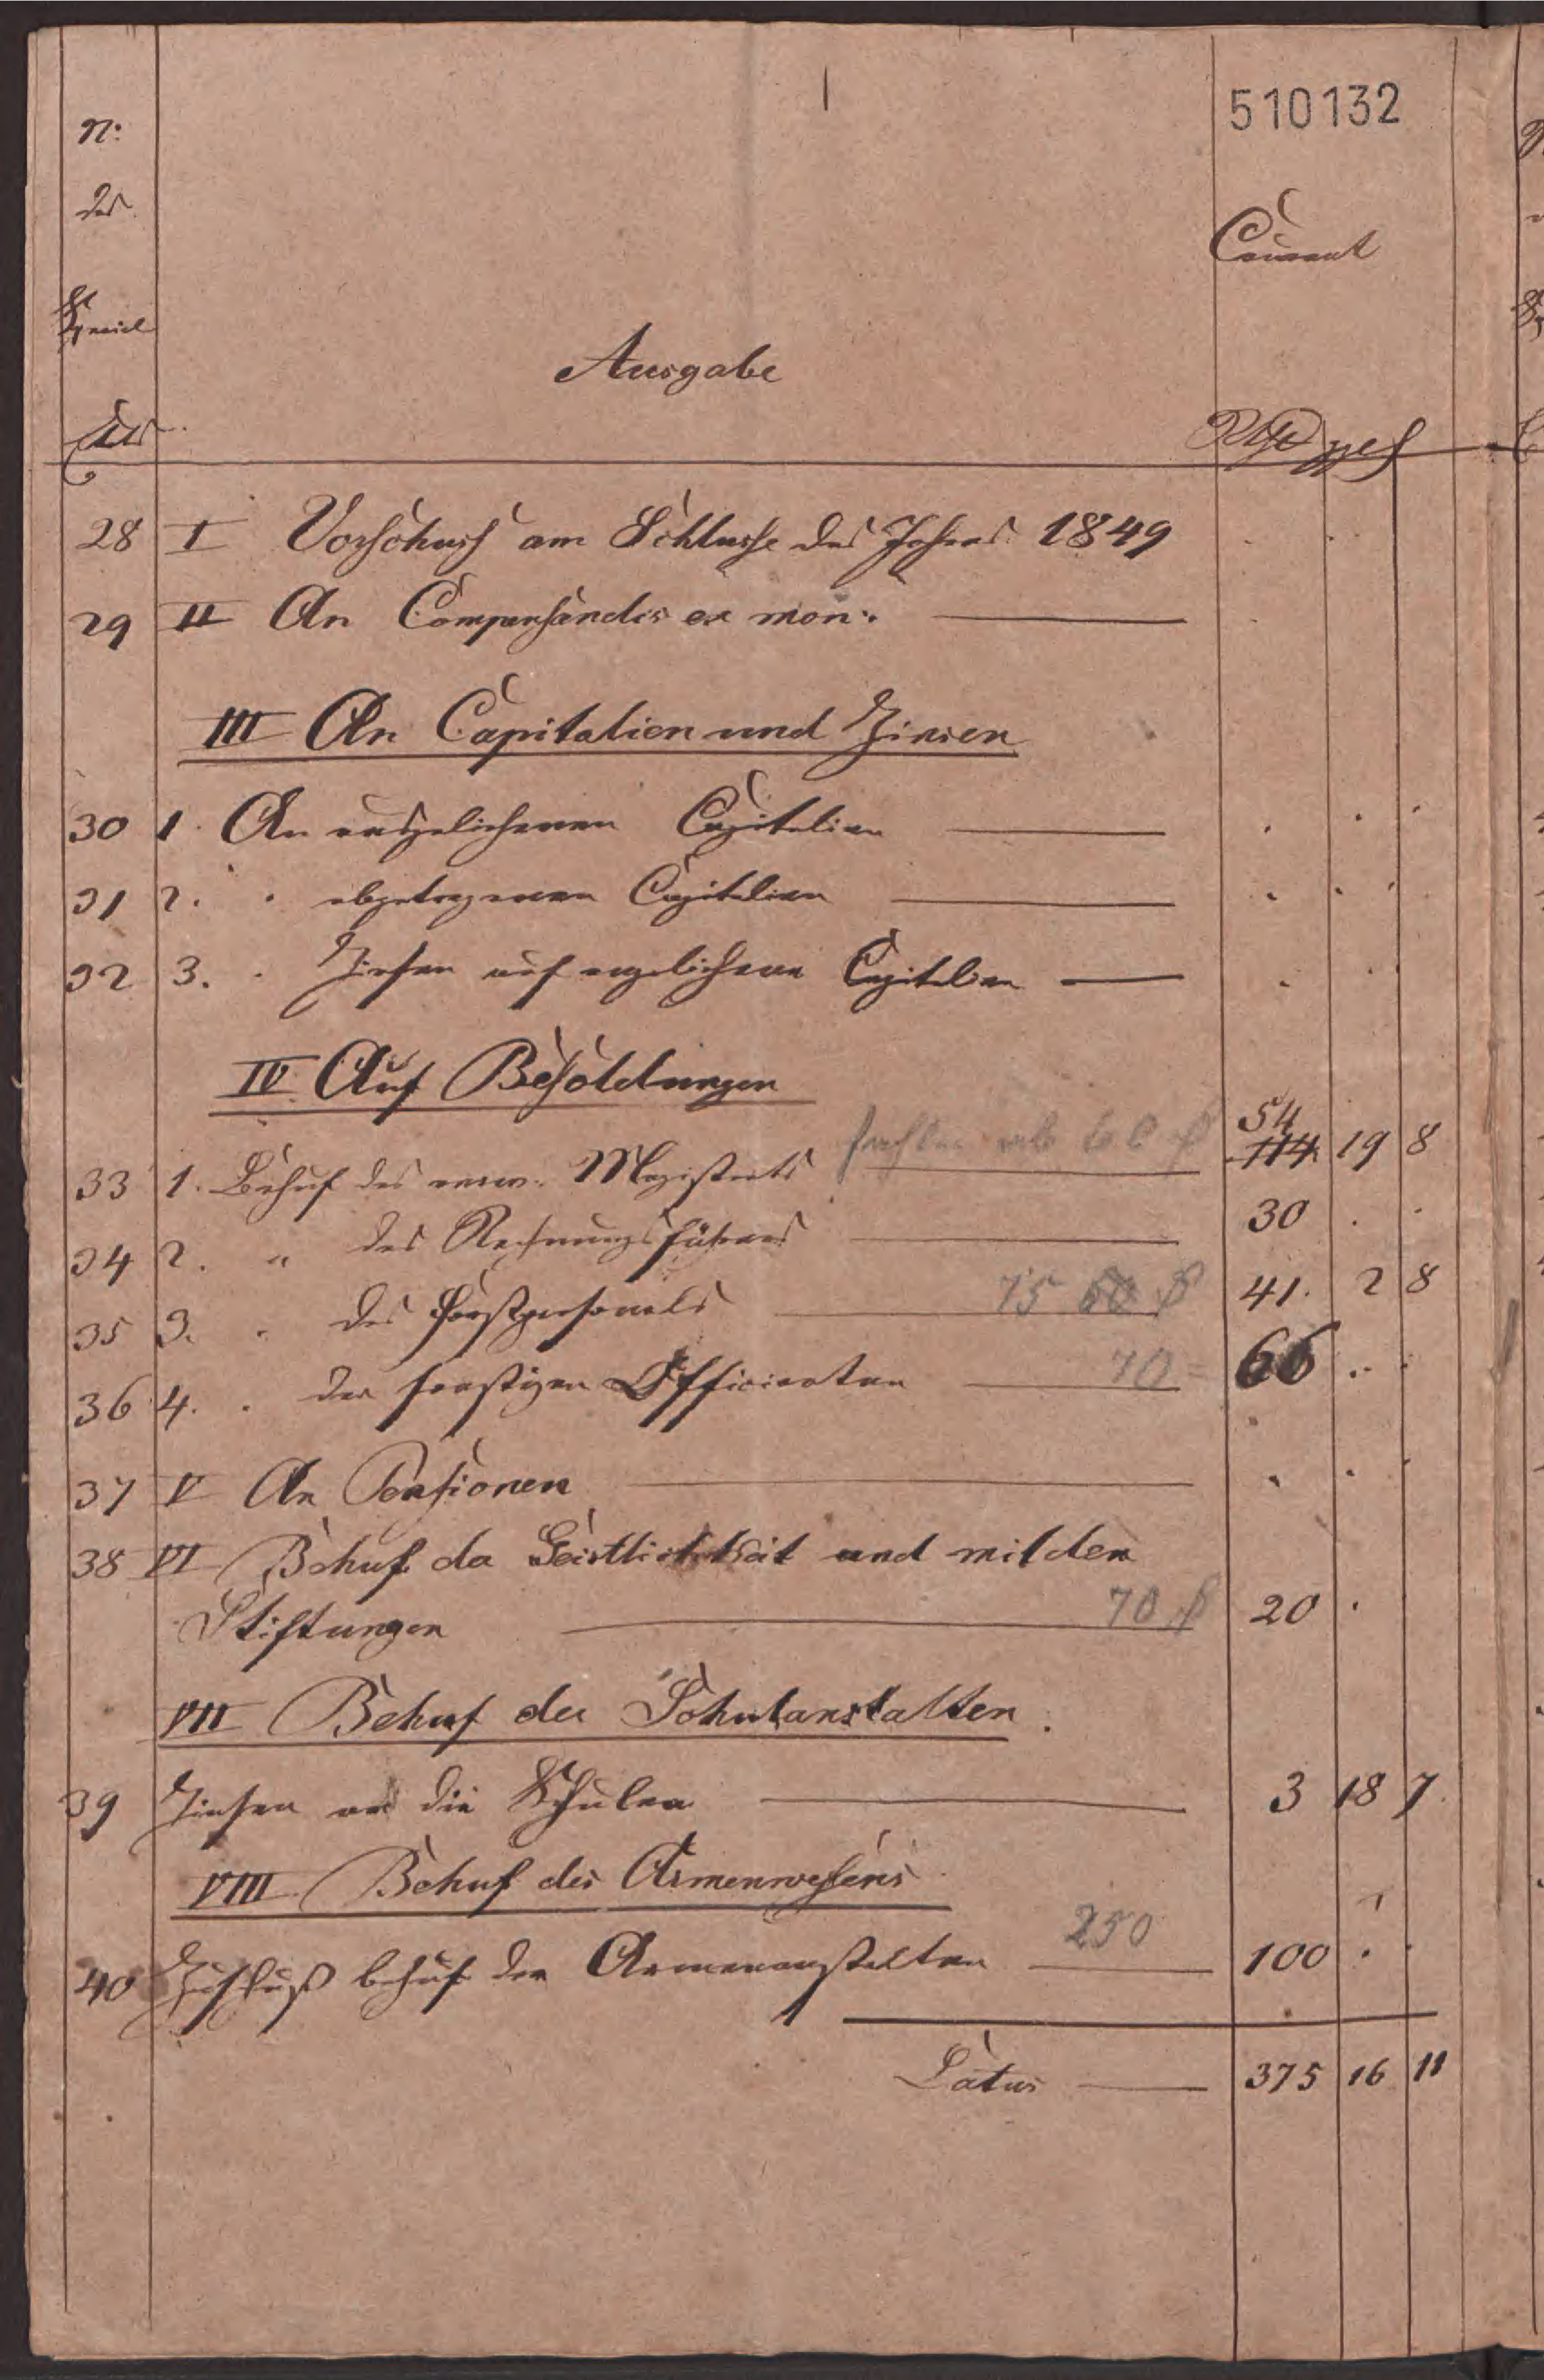 510132
N:
des
Courant
Special
Ausgabe
Rthlr ggl
28 I Vorschuss am Schlusse des Jahres 1849
29 II An Compensandis ex mon:
III An Capitalien und Zinsen
30 1. An ausgeliehenen Capitalien
31 2. " abgetragenen Capitalien
32 3. " Zinsen auf angeliehene Capitalien
IV Auf Besoldungen
54
33 1. Behuf des Magistrats 114 19 8
34 2. " des Rechnungsführers 30
35 3. " des Forstpersonals 75 60 41. 2 8
36 4. " der sonstigen Officianten 70 66
37 V An Pensionen
38 VI Behuf der Geistlichkeit und milden
Stiftungen 70 20
VII Behuf der Schulanstalten.
39 Zinsen an die Schulen 3 18 7
VIII Behuf des Armenwesens
40 Zuschuß behuf der Armenanstalten 250 100
Latus 375 16 11